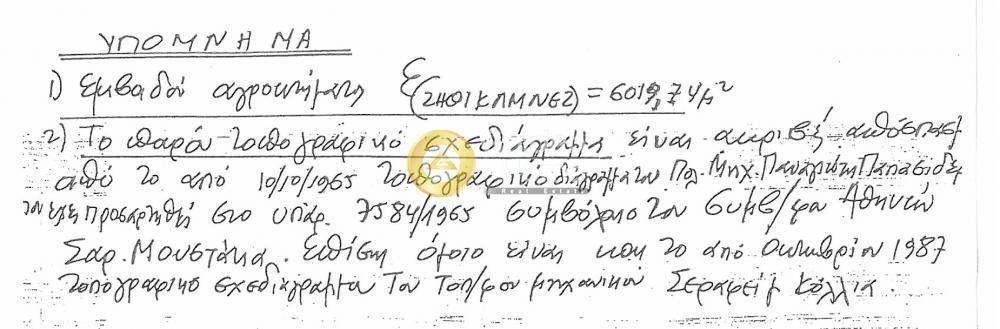 ΥΠΟΜΝΗΜΑ
1) Εμβαδόν αγροκτήματος Ε(ΖΗΘΙΚΛΜΝΕΖ) = 6019,74μ²
2) Το παρόν τοπογραφικό σχεδιάγραμμα είναι ακριβές απόσπασμα
από το από 10/10/1965 τοπογραφικό διάγραμμα του Πολ. Μηχ. Παναγιώτη
που έχει προσαρτηθεί στο υπάρ. 7584/1965 συμβόλαιο του συμβ/φου Αθηνών
Σαρ. Μουστάκα. Επίσης όμοιο είναι και το από Οκτωβρίου 1987
τοπογραφικό σχεδιάγραμμα του τοπ/φου μηχανικού Σεραφείμ Κόλλια.
Real Estate